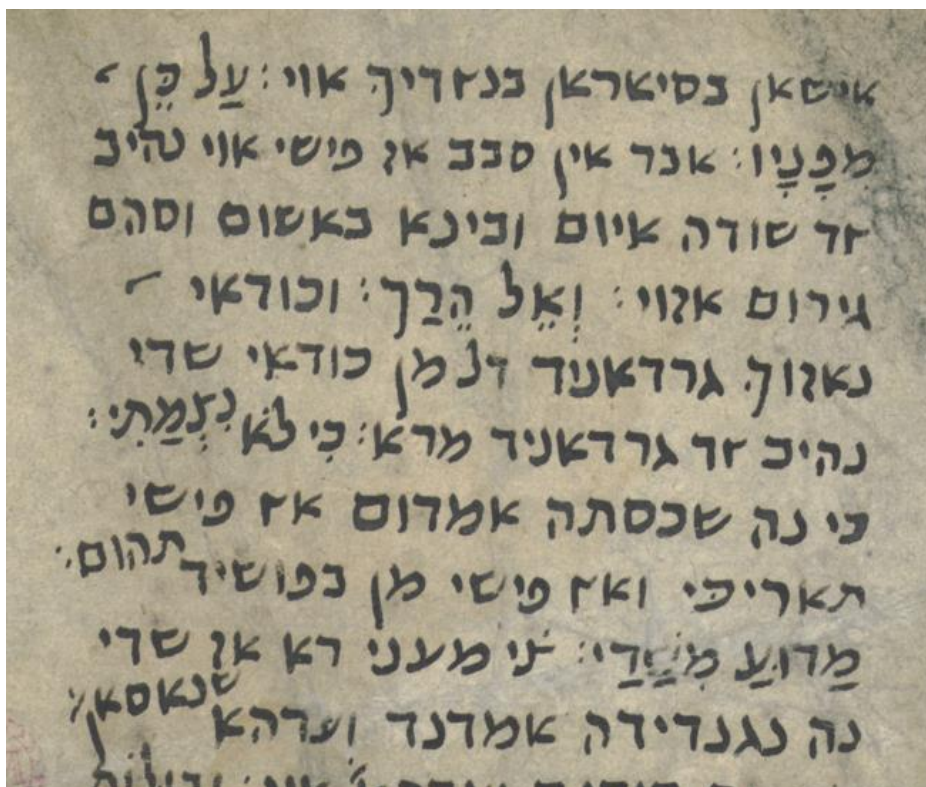 אישאן בסיאראן בנזדיך אוי: עַל כֵּן
מִפָּנָיו: אבר אין סבב אז פישי אוי נהיב
זד שודה איום ובינא באשום וסהם
גירום אזוי: וְאֵל הֵרַך: וכודאי
נאזוך גרדאניד דל מן כודאי שדי
נהיב זד גרדאניד מרא: כִי לֹא נִצְמַתִי:
כי נה שכסתה אמדום אז פישי
תאריכי ואז פישי מן בפושיד תהום:
מַדוּעַ מִשַׁדַי: צי מעני רא אז שדי
נה נגנדידה אמדנד וערהא שנאסאן